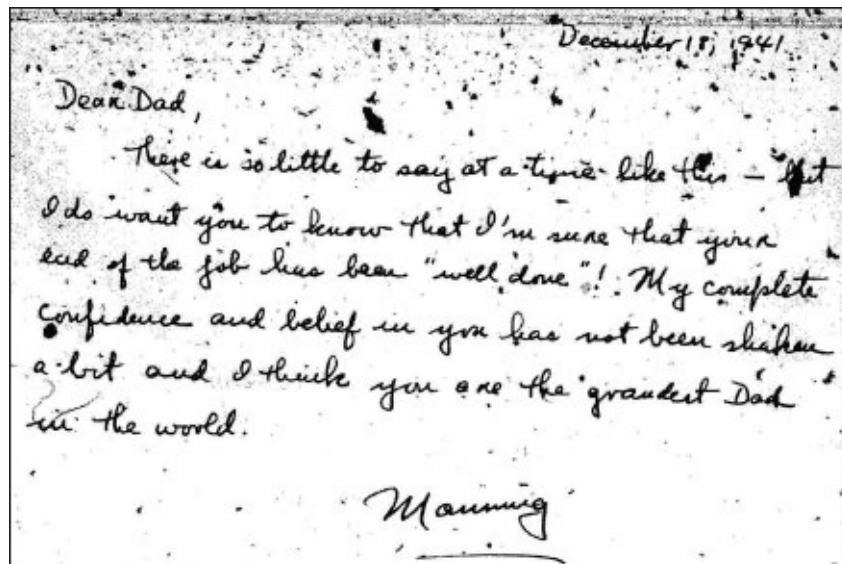 December 18, 1941
Dear Dad,
There is so little to say at a time like this – but
I do want you to know that I'm sure that your
end of the job has been "well done"! My complete
confidence and belief in you has not been shaken
a bit and I think you are the grandest Dad
in the world.
Manning